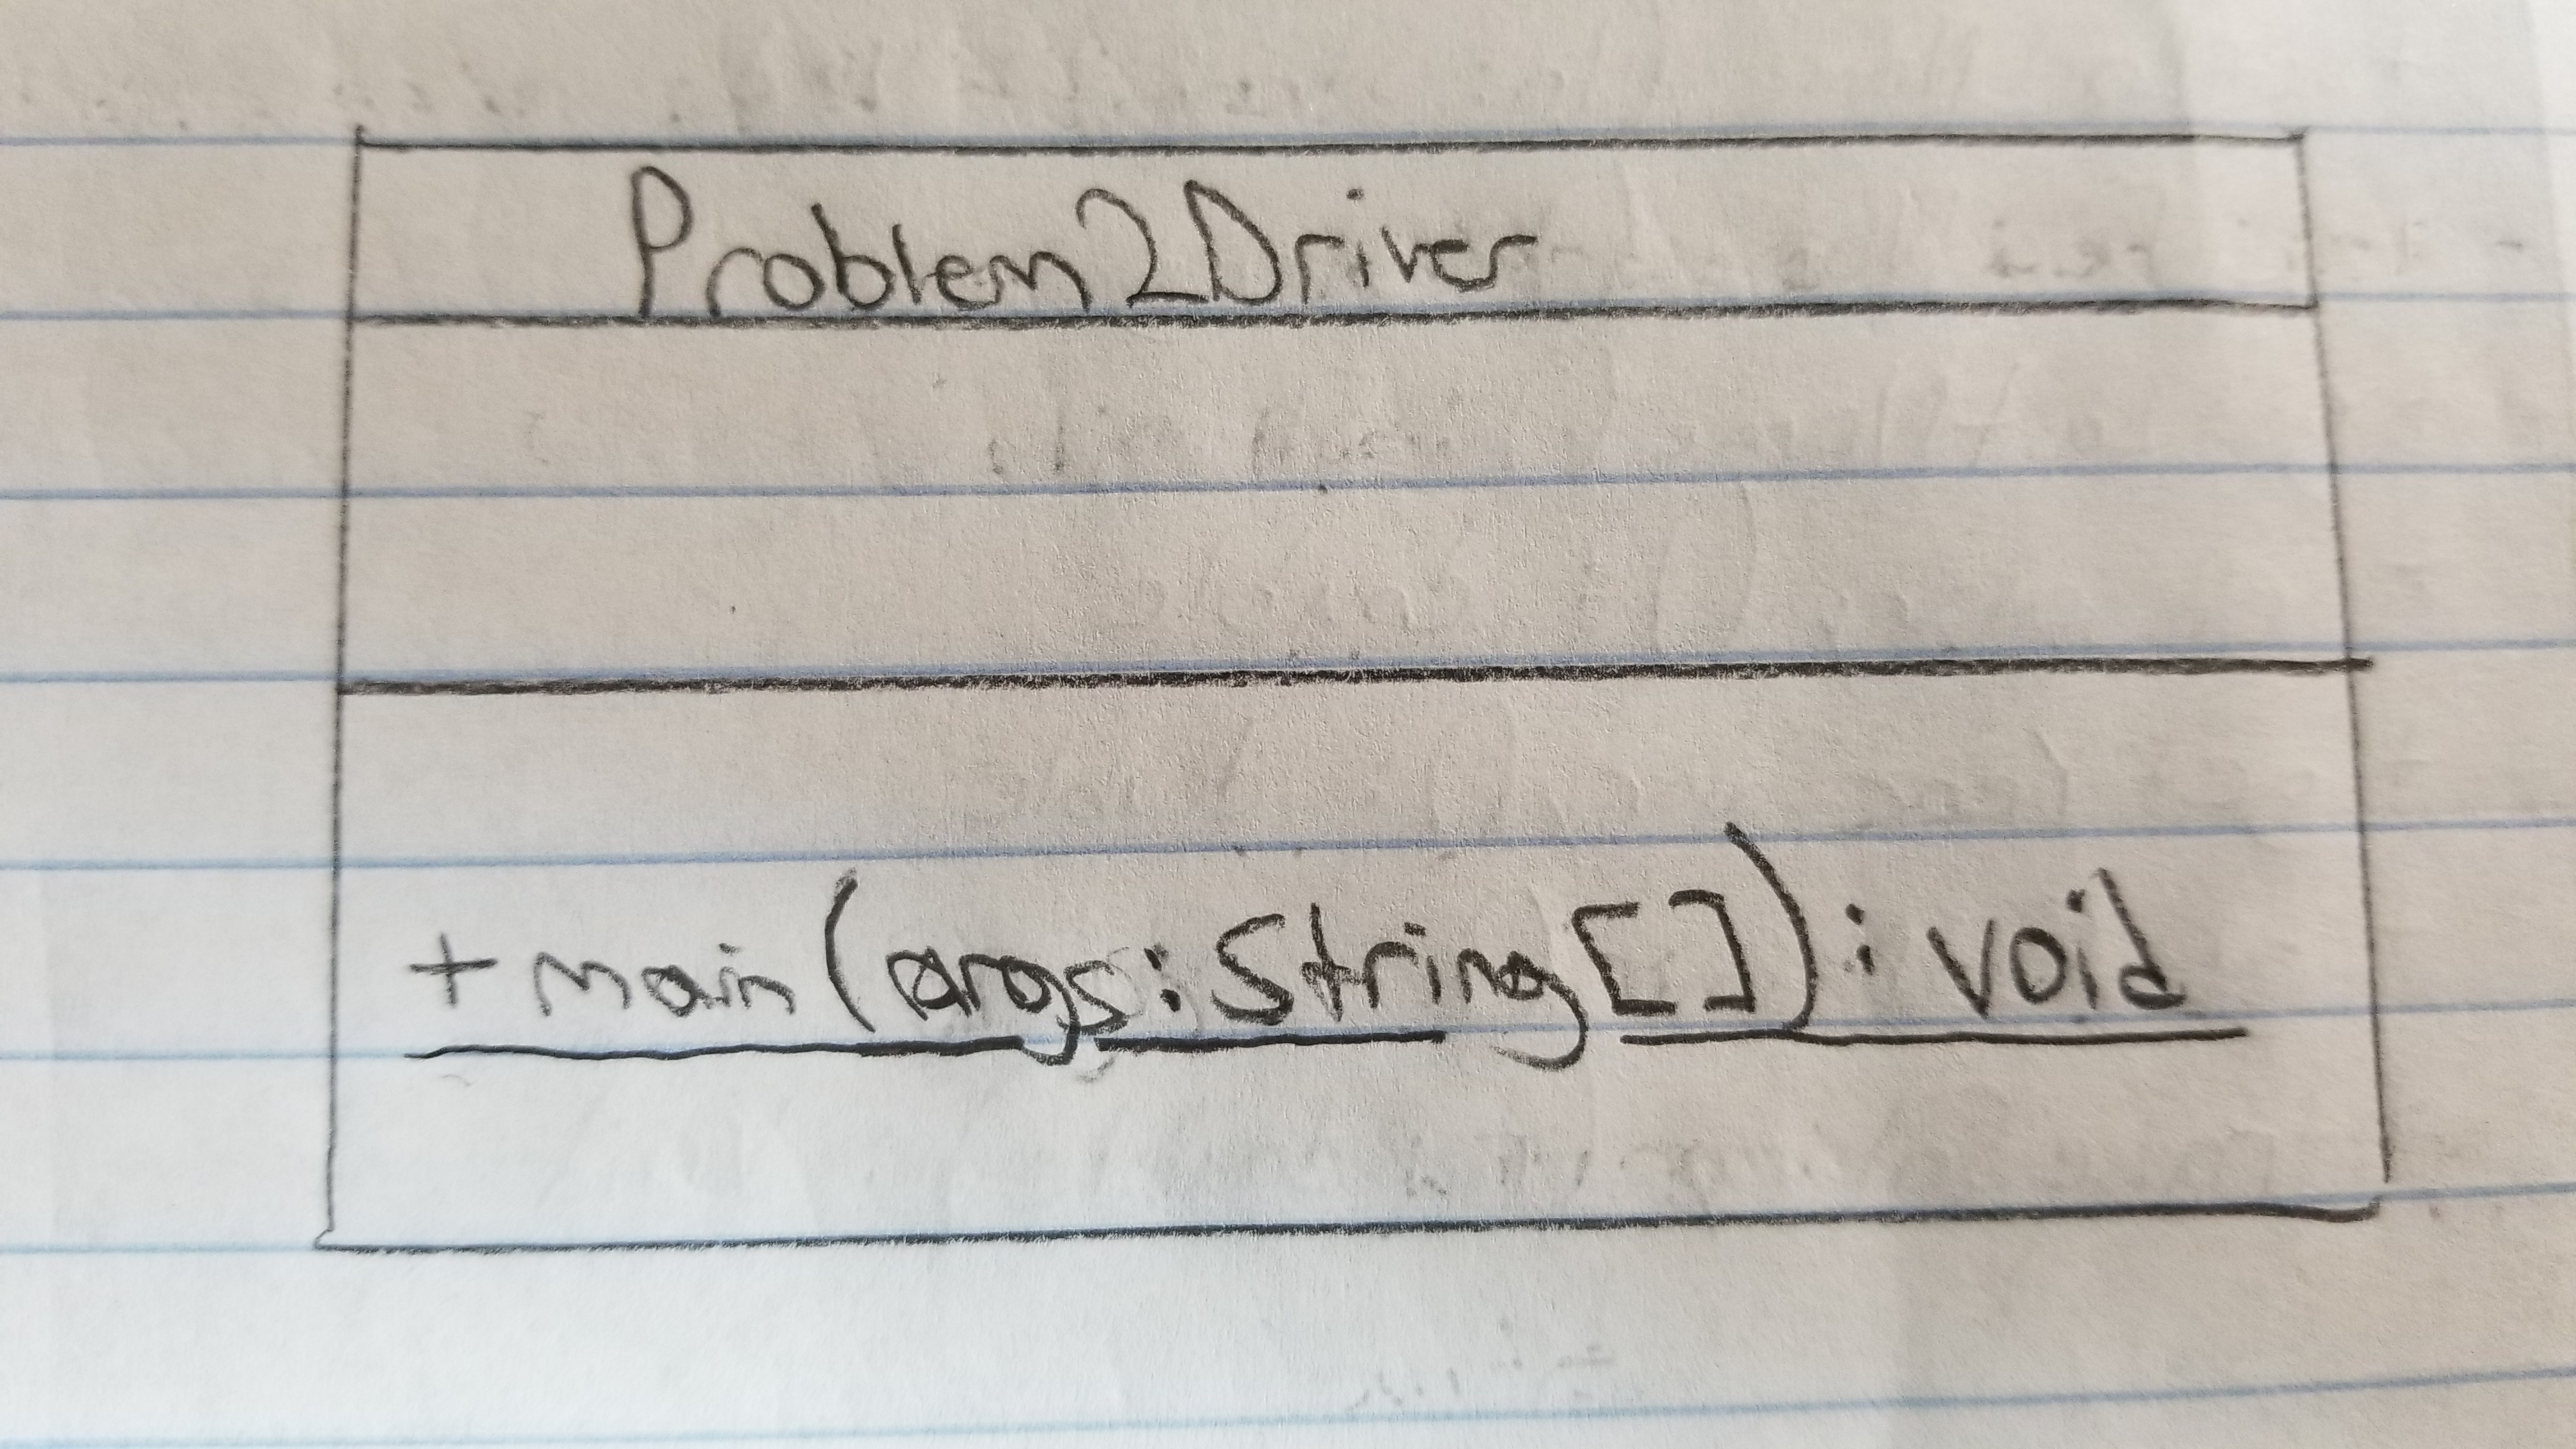 Problem2Driver
+ main(args: String[]): void